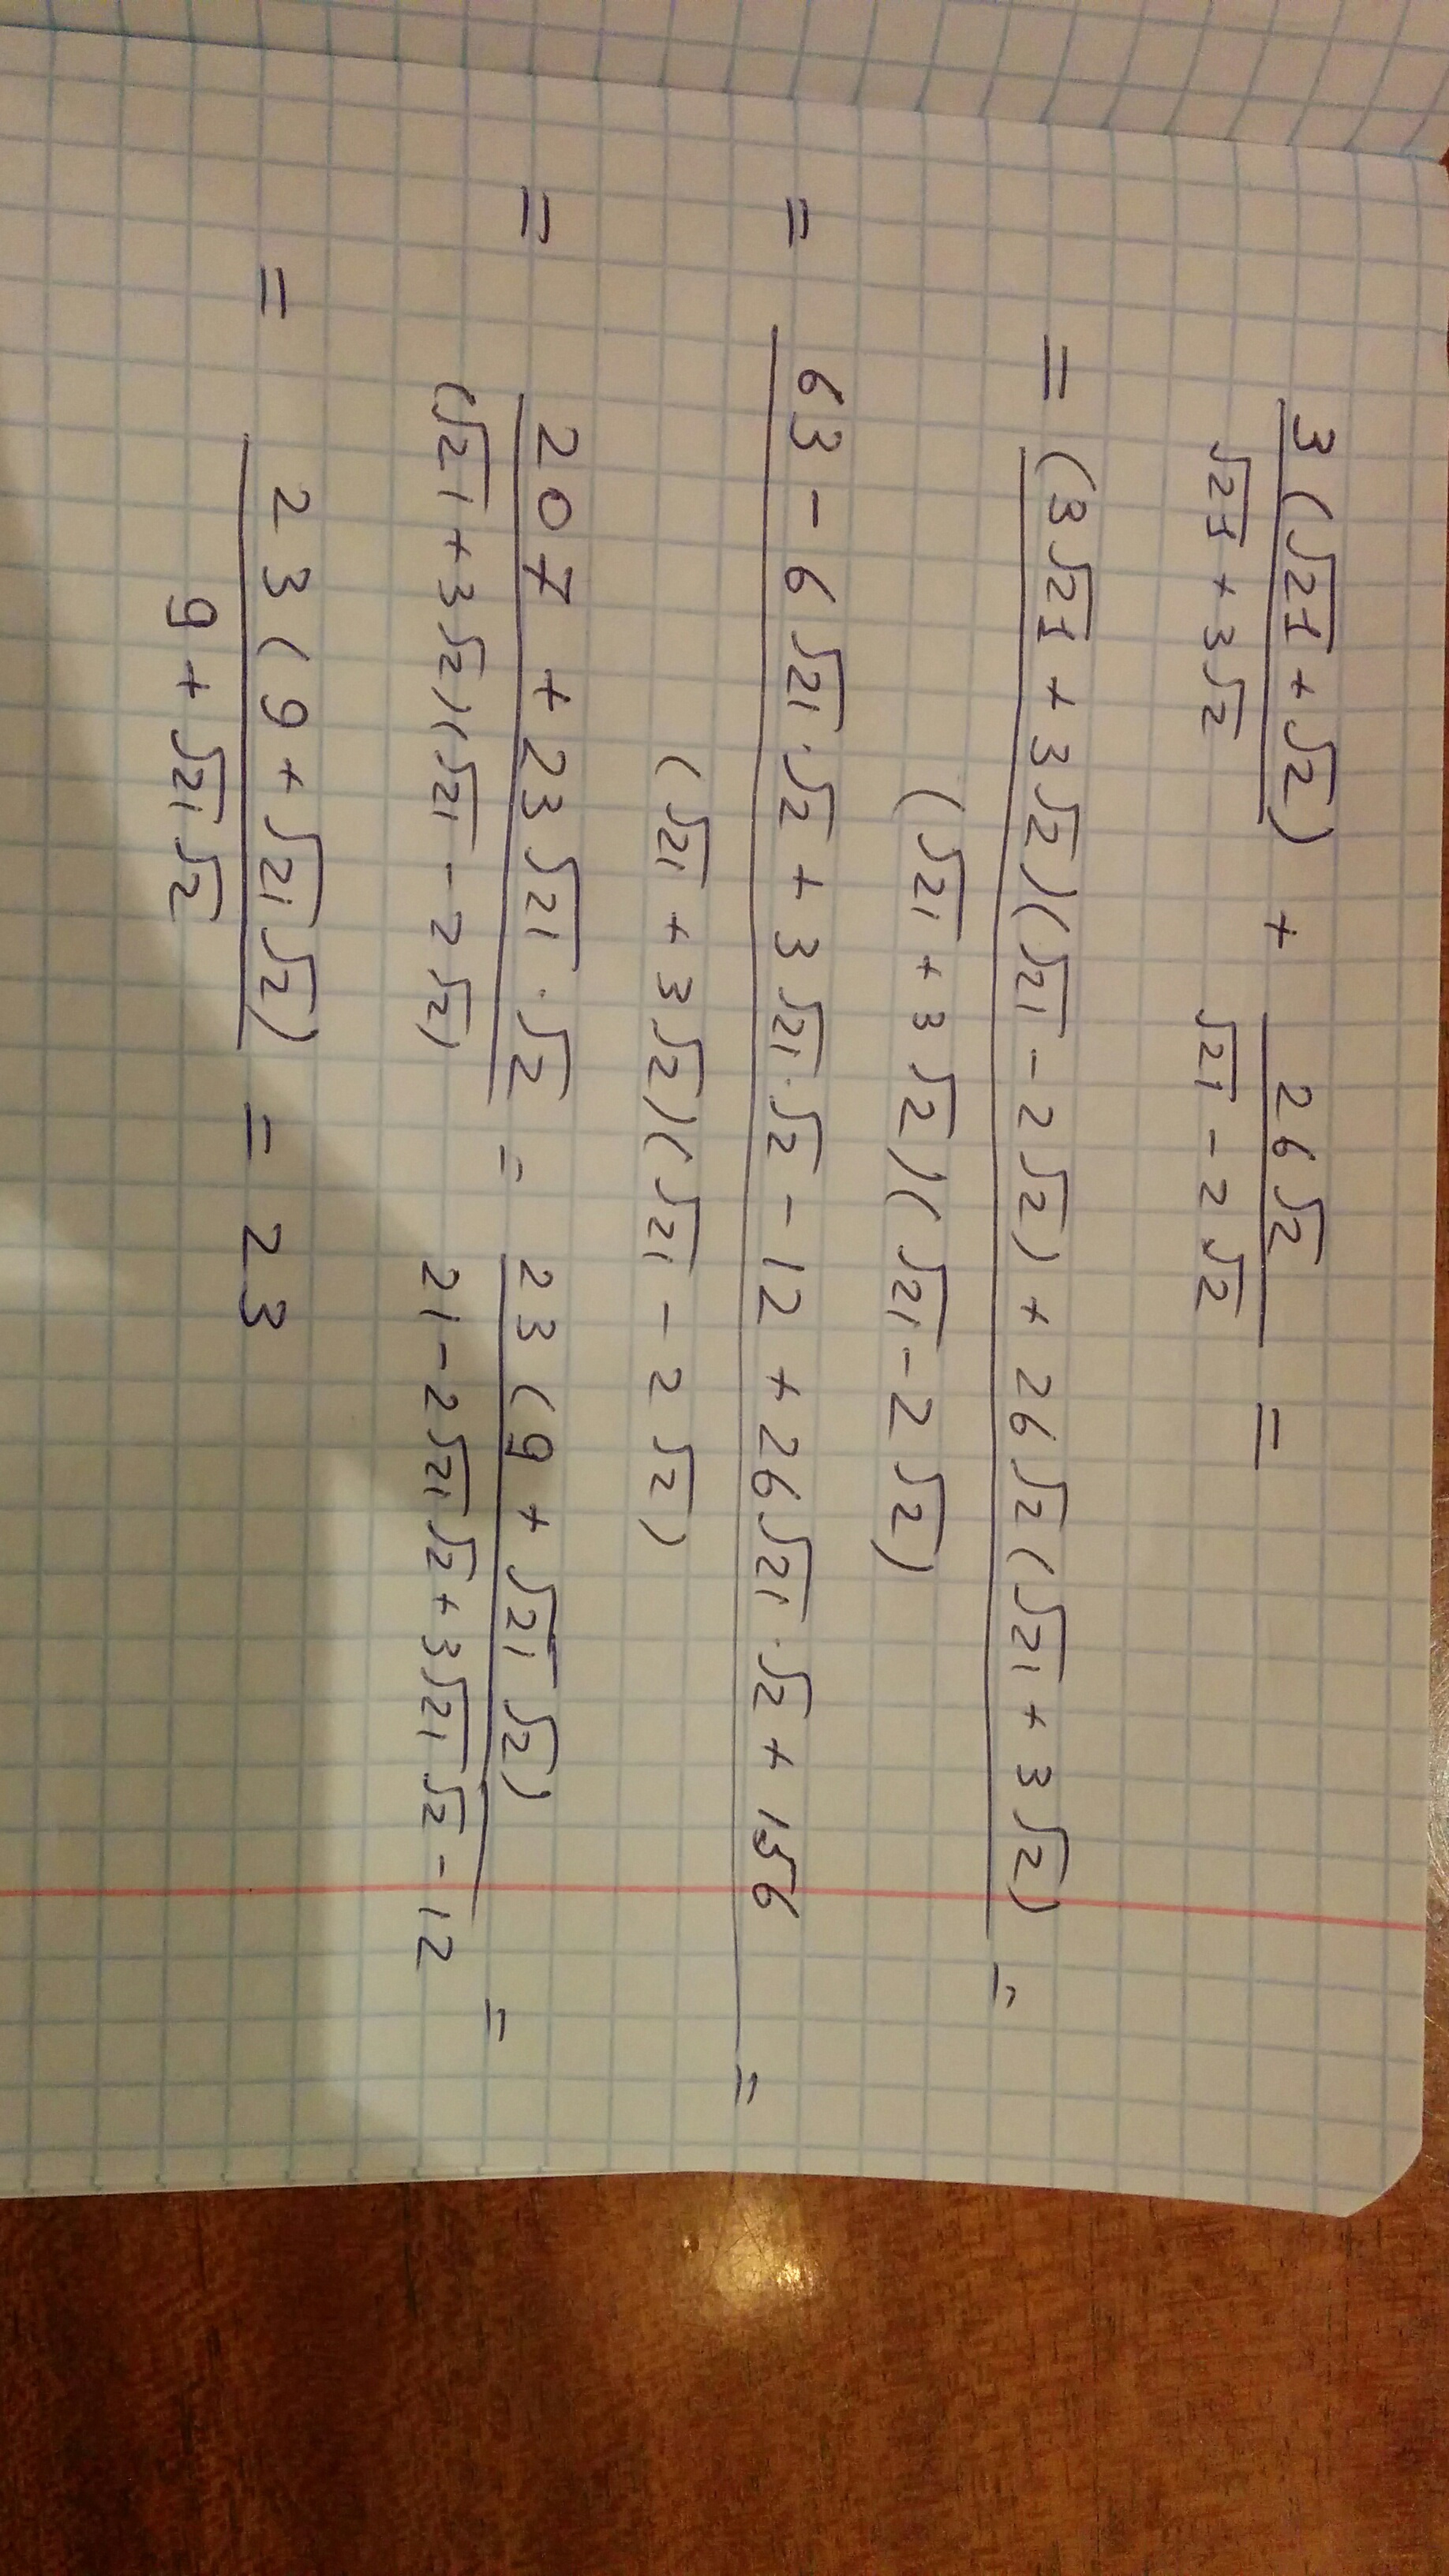 3(√21 + √2) / (√21 + 3√2) + 26√2 / (√21 - 2√2) =
= ((3√21 + 3√2)(√21 - 2√2) + 26√2(√21 + 3√2)) / ((√21 + 3√2)(√21 - 2√2)) =
= (63 - 6√21·√2 + 3√21·√2 - 12 + 26√21·√2 + 156) / ((√21 + 3√2)(√21 - 2√2)) =
= (207 + 23√21·√2) / ((√21 + 3√2)(√21 - 2√2)) = 23(9 + √21√2) / (21 - 2√21√2 + 3√21√2 - 12) =
= 23(9 + √21√2) / (9 + √21√2) = 23